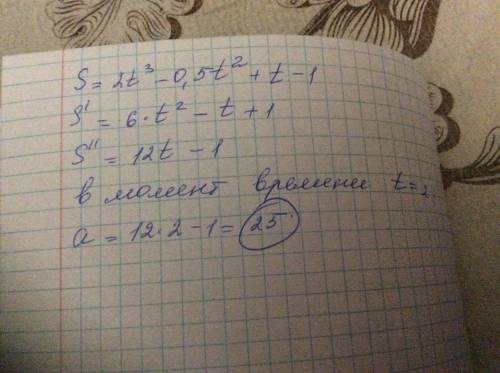 S = 2t³ - 0,5t² + t - 1
S' = 6·t² - t + 1
S'' = 12t - 1
в момент времени t = 2.
a = 12·2 - 1 = 25